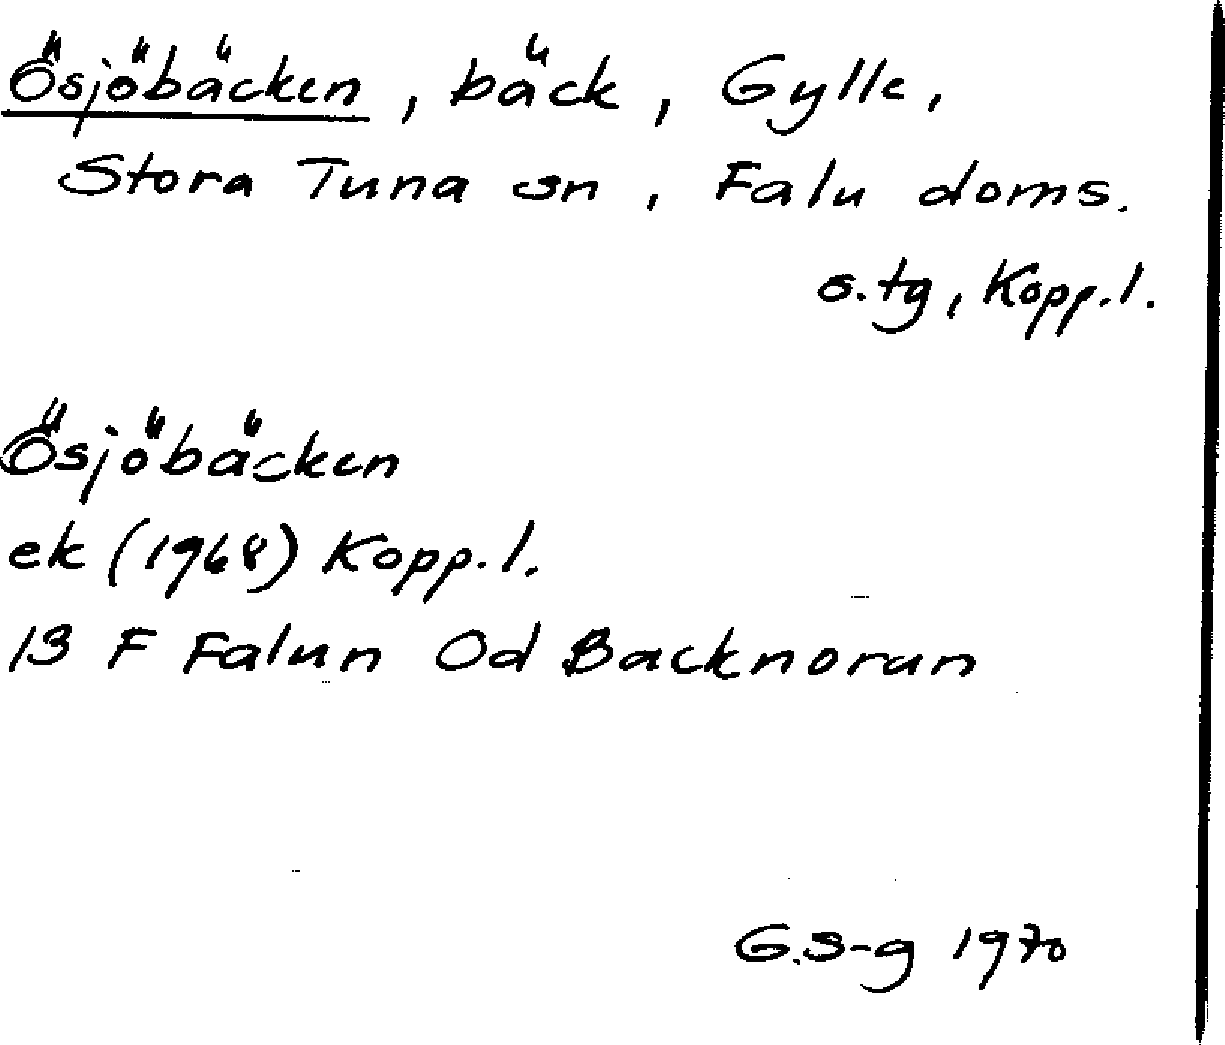 Ösjöbäcken, bäck, Gylle,
Stora Tuna sn, Falu doms.
s.tg, Kopp.l.
Ösjöbäcken
ek (1968) Kopp.l.
13 F Falun 0d Backnoran
G.S-g 1970